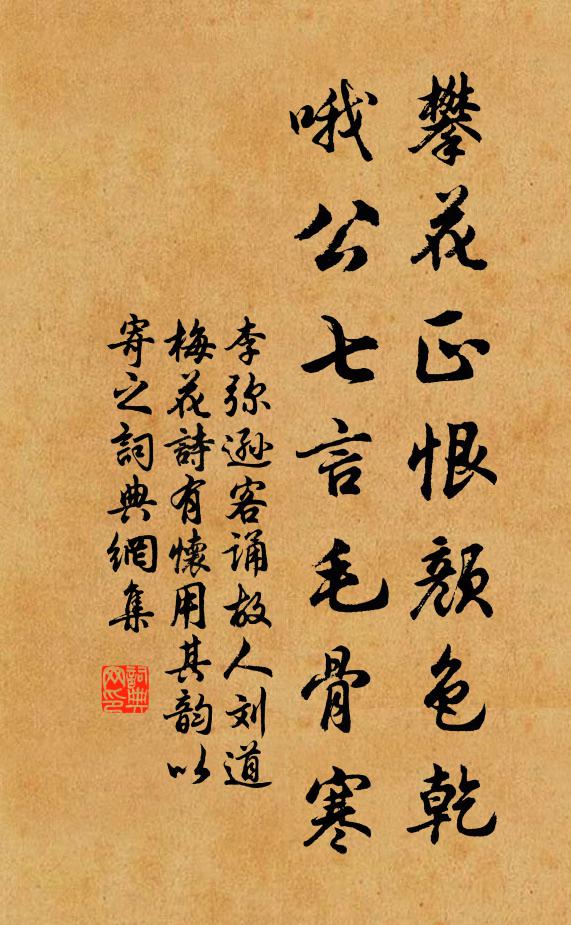 攀花正恨顔色乾
哦公七言毛骨寒
李弥遜客诵故人刘道
梅花詩有懷用其韵以
寄之詞典網集
詞典网印